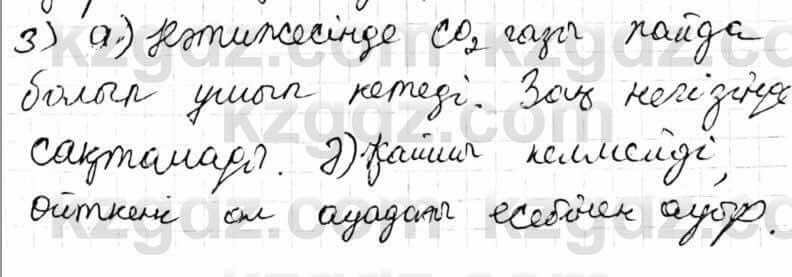 3) а.) Нәтижесінде CO₂ газы пайда
болып ушып кетеді. Заң негізінде
сақталады. ә) Қайшы келмейді,
Өйткені ол ауадағы есебінен ауыр.
kzgdz.com